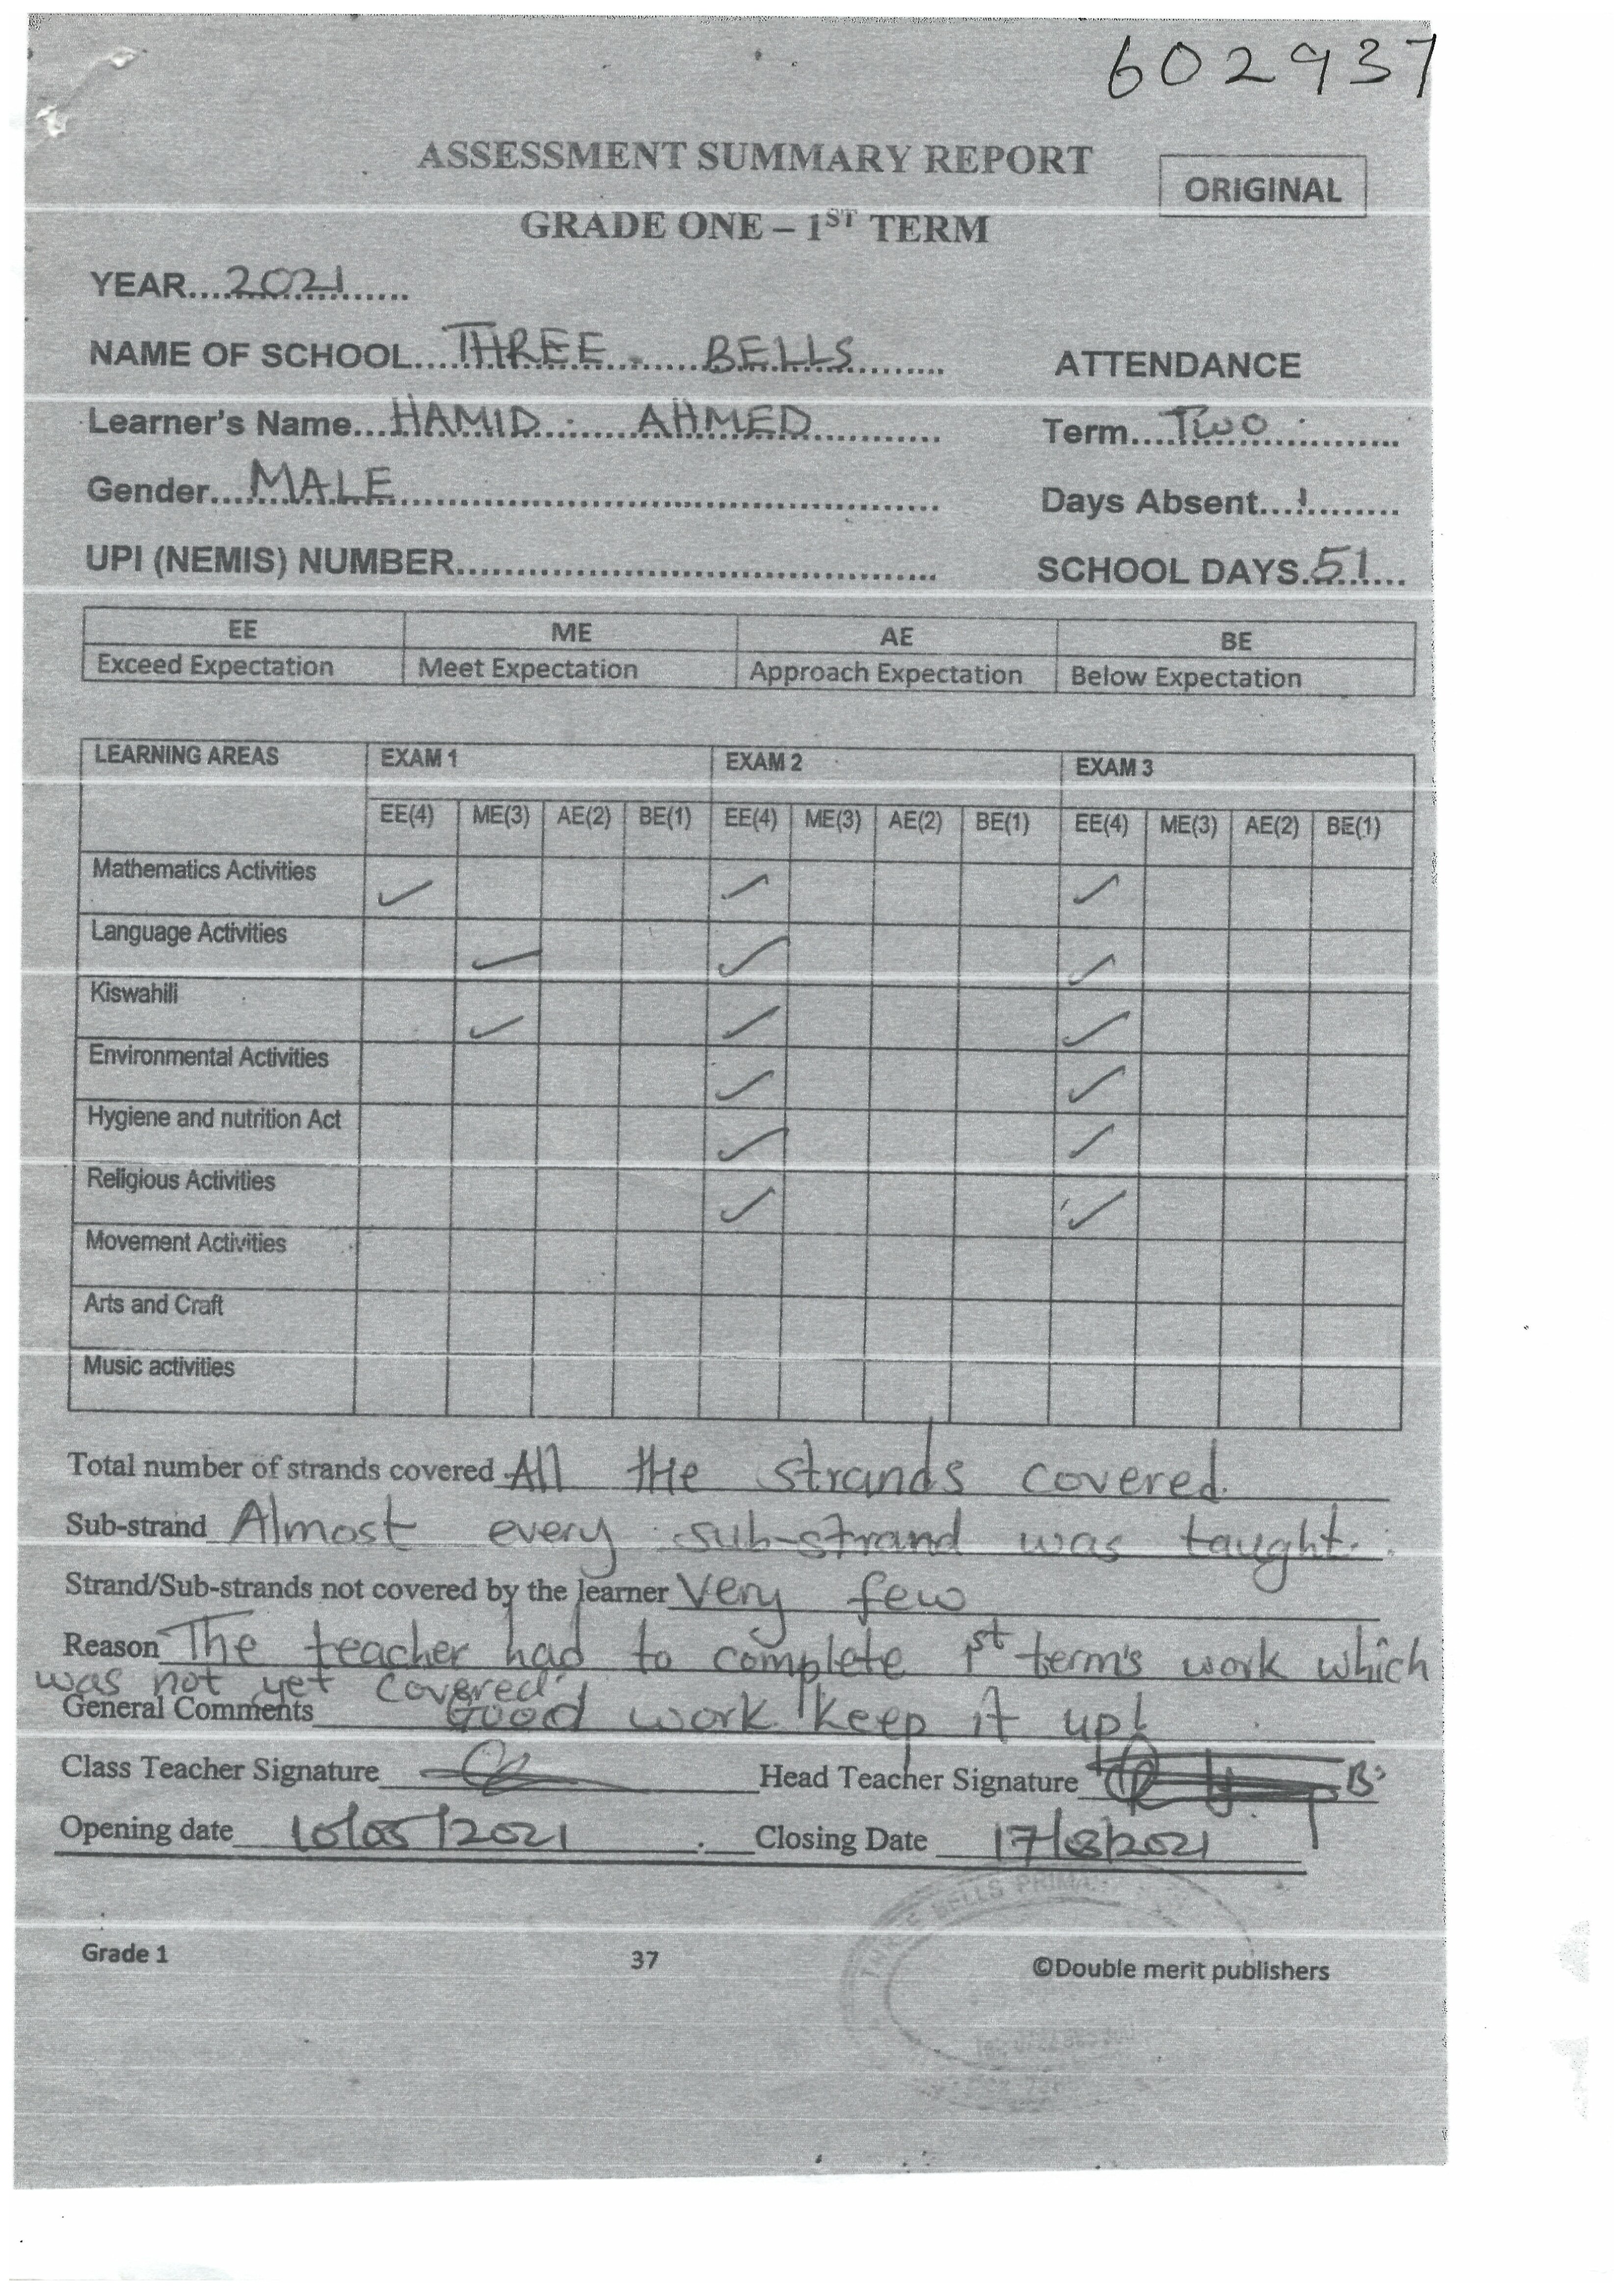 602937
ASSESSMENT SUMMARY REPORT
ORIGINAL
GRADE ONE – 1ST TERM
YEAR....2021..............
NAME OF SCHOOL....THREE BELLS.......... ATTENDANCE
Learner's Name....HAMID AHMED............ Term....Two...............
Gender....MALE.................................................... Days Absent....1.........
UPI (NEMIS) NUMBER............................................. SCHOOL DAYS.51......
EE ME AE BE
Exceed Expectation Meet Expectation Approach Expectation Below Expectation
LEARNING AREAS EXAM 1 EXAM 2 EXAM 3
EE(4) ME(3) AE(2) BE(1) EE(4) ME(3) AE(2) BE(1) EE(4) ME(3) AE(2) BE(1)
Mathematics Activities ✓ ✓ ✓
Language Activities ✓ ✓ ✓
Kiswahili ✓ ✓ ✓
Environmental Activities ✓ ✓
Hygiene and nutrition Act ✓ ✓
Religious Activities ✓ ✓
Movement Activities
Arts and Craft
Music activities
Total number of strands covered All the strands covered.
Sub-strand Almost every sub-strand was taught.
Strand/Sub-strands not covered by the learner Very few
Reason The teacher had to complete 1st term's work which
was not yet covered.
General Comments Good work keep it up!
Class Teacher Signature Head Teacher Signature
Opening date 10/05/2021 Closing Date 17/8/2021
THREE BELLS
Grade 1 37 ©Double merit publishers